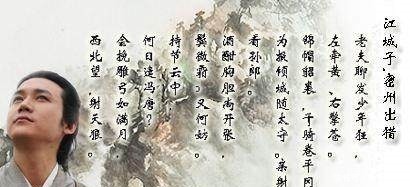 江城子·密州出猎
老夫聊发少年狂，
左牵黄、右擎苍。
锦帽貂裘，千骑卷平冈
为报倾城随太守。亲射
看孙郎。
酒酣胸胆尚开张，
鬓微霜，又何妨。
持节云中，
何日遣冯唐？
会挽雕弓如满月，
西北望，射天狼。